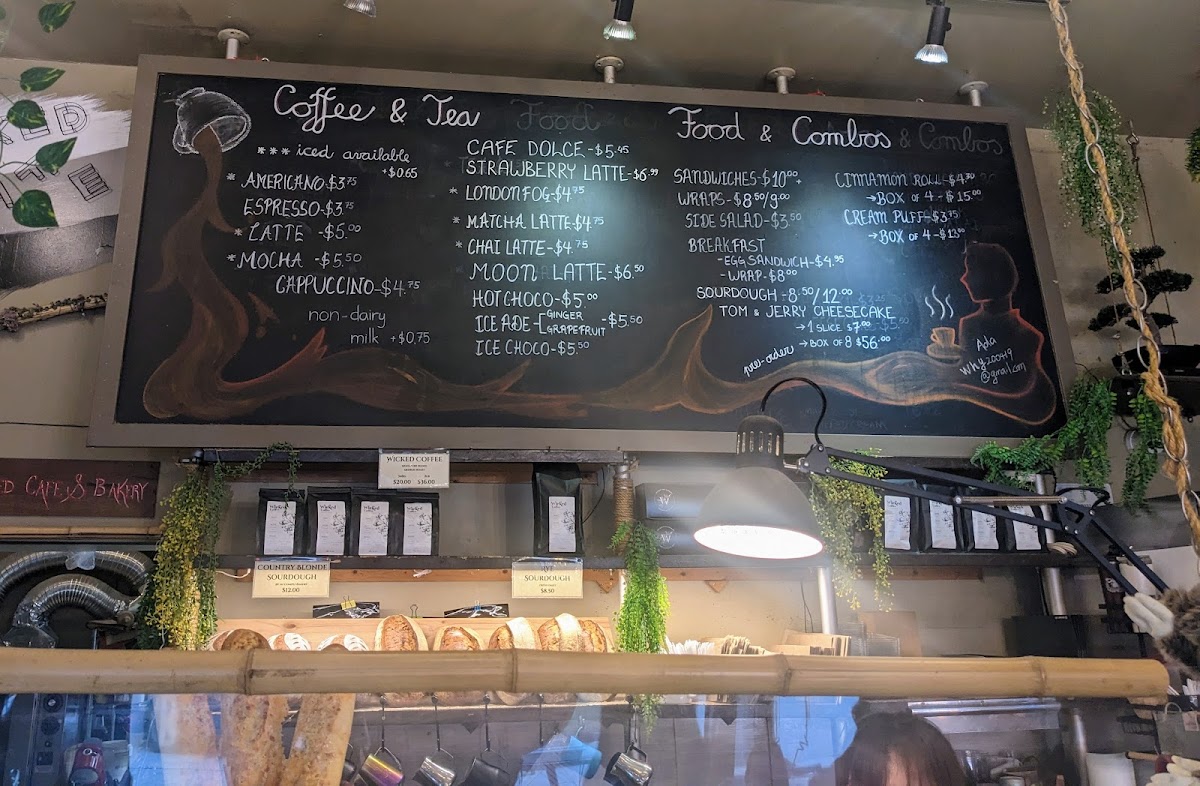 Coffee & Tea
*** iced available
+$0.65
* AMERICANO-$3.75
ESPRESSO-$3.75
* LATTE -$5.00
* MOCHA -$5.50
CAPPUCCINO-$4.75
non-dairy
milk +$0.75
Food
CAFE DOLCE-$5.45
STRAWBERRY LATTE-$6.99
* LONDON FOG-$4.75
* MATCHA LATTE-$4.75
* CHAI LATTE-$4.75
MOON LATTE-$6.50
HOT CHOCO-$5.00
ICE ADE-[GINGER
GRAPEFRUIT -$5.50
ICE CHOCO-$5.50
Food & Combos & Combos
SANDWICHES-$10.00+
WRAPS-$8.50/9.00
SIDE SALAD-$3.50
BREAKFAST
-EGG SANDWICH-$4.95
-WRAP-$8.00
SOURDOUGH-8.50/12.00
TOM & JERRY CHEESECAKE
→1 SLICE $7.00
pre-order →BOX OF 8 $56.00
CINNAMON ROLL-
→BOX OF 4-$15.00
CREAM PUFF-$3.75
→BOX OF 4-
Ada
why200419
@gmail.com
WICKED COFFEE
$20.00 $36.00
D CAFE & BAKERY
Wicked
Wicked
Wicked
COUNTRY BLONDE
SOURDOUGH
$12.00
SOURDOUGH
$8.50
KED